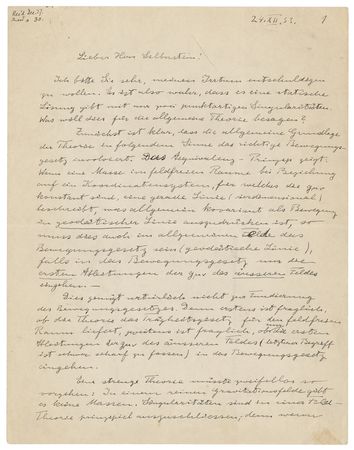 24. XII. 53. 1
Lieber Herr Silberstein!
Ich bitte Sie sehr, meinen Irrtum entschuldigen
zu wollen. Es ist also wahr, dass es eine statische
Lösung gibt mit nur zwei punktartigen Singularitäten.
Was will dies für die allgemeine Theorie besagen?
Zunächst ist klar, dass die allgemeine Grundlage
der Theorie in folgendem Sinne das richtige Bewegungs-
gesetz involviert. Das Aequivalenz-Prinzip zeigt:
Wenn eine Masse im feldfreien Raume bei Beziehung
auf ein Koordinatensystem, für welches die gμν
konstant sind, eine gerade Linie (vierdimensional)
beschreibt, was allgemein kovariant als Bewegung
in geodätischer Linie auszudrücken ist, so
muss dies auch im allgemeinen Felde das
Bewegungsgesetz sein (geodätische Linie),
falls in das Bewegungsgesetz nur die
ersten Ableitungen der gμν des äusseren Feldes
eingehen. —
Dies genügt natürlich nicht zur Fundierung
des Bewegungsgesetzes. Denn erstens ist fraglich,
ob die Theorie das Trägheitsgesetz für den feldfreien
Raum liefert, zweitens ist fraglich, ob nur die ersten
Ableitungen der gμν des äusseren Feldes (letzterer Begriff
ist schwer scharf zu fassen) in das Bewegungsgesetz
eingehen.
Eine strenge Theorie müsste zweifellos so
vorgehen: In einem reinen Gravitationsfelde gibt
es keine Massen. Singularitäten sind in einer Feld-
Theorie prinzipiell auszuschliessen; denn wenn